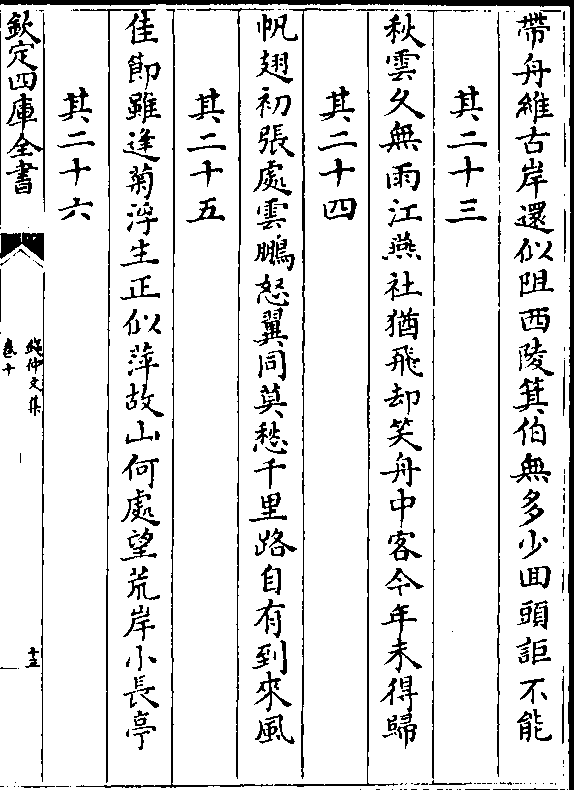 帶舟維古岸還似阻西陵箕伯無多少回頭詎不能
其二十三
秋雲久無雨江燕社猶飛却笑舟中客今年未得歸
其二十四
帆翅初張處雲鵬怒翼同莫愁千里路自有到來風
其二十五
佳節雖逢菊浮生正似萍故山何處望荒岸小長亭
其二十六
欽定四庫全書
錢仲文集
卷十
十五